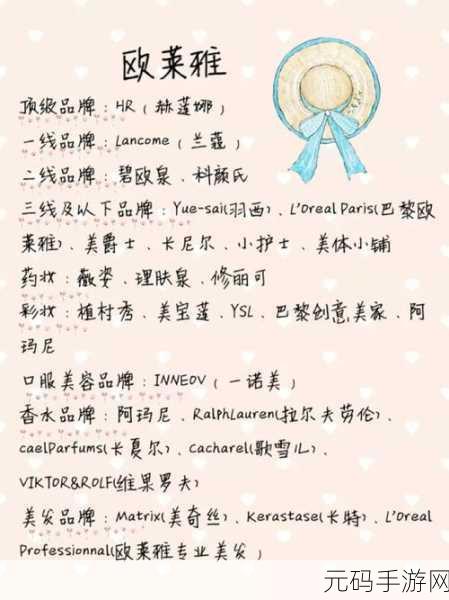 欧莱雅
顶级品牌：HR（赫莲娜）
一线品牌：Lancome（兰蔻）
二线品牌：碧欧泉、科颜氏
三线及以下品牌：Yue-sai(羽西)、L'Oreal Paris(巴黎欧
莱雅)、美爵士、卡尼尔、小护士、美体小铺
药妆：薇姿、理肤泉、修丽可
彩妆：植村秀、美宝莲、YSL、巴黎创意美家、阿
玛尼
口服美容品牌：INNEOV（一诺美）
香水品牌：阿玛尼、RalphLauren(拉尔夫劳伦)、
caelParfums(卡夏尔)、Cacharel(歌雪儿)、
VIKTOR&ROLF(维果罗夫)
美发品牌：Matrix(美奇丝)、Kerastase(卡特)、L'Oreal
Professionnal(欧莱雅专业美发）
元码手游网